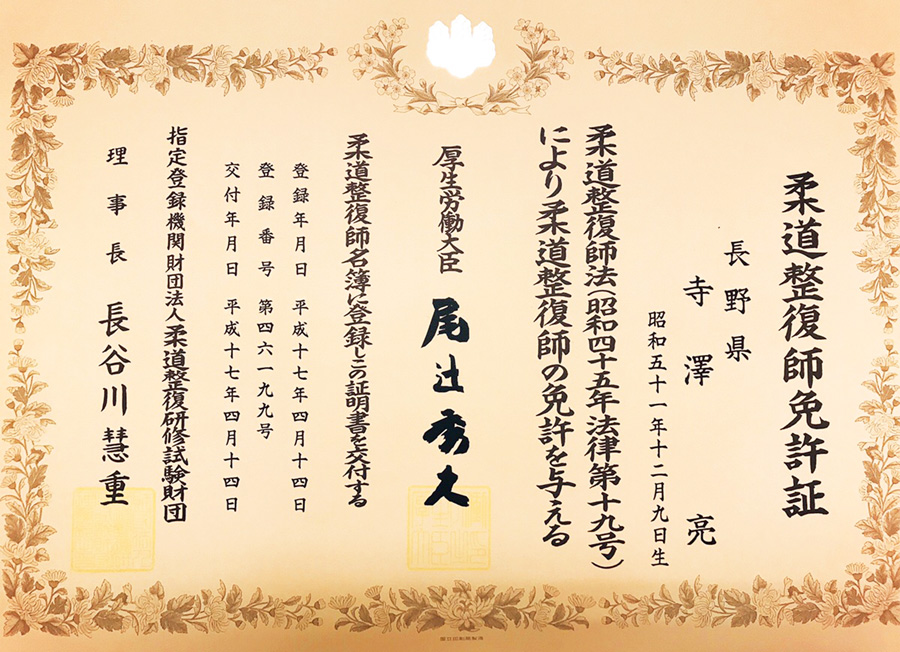 柔道整復師免許証
長野県
寺澤 亮
昭和五十一年十二月九日生
柔道整復師法(昭和四十五年法律第十九号)
により柔道整復師の免許を与える
厚生労働大臣 尾辻秀久
柔道整復師名簿に登録しこの証明書を交付する
登録年月日 平成十七年四月十四日
登録番号 第四六一九九号
交付年月日 平成十七年四月十四日
指定登録機関財団法人柔道整復研修試験財団
理事長 長谷川慧重